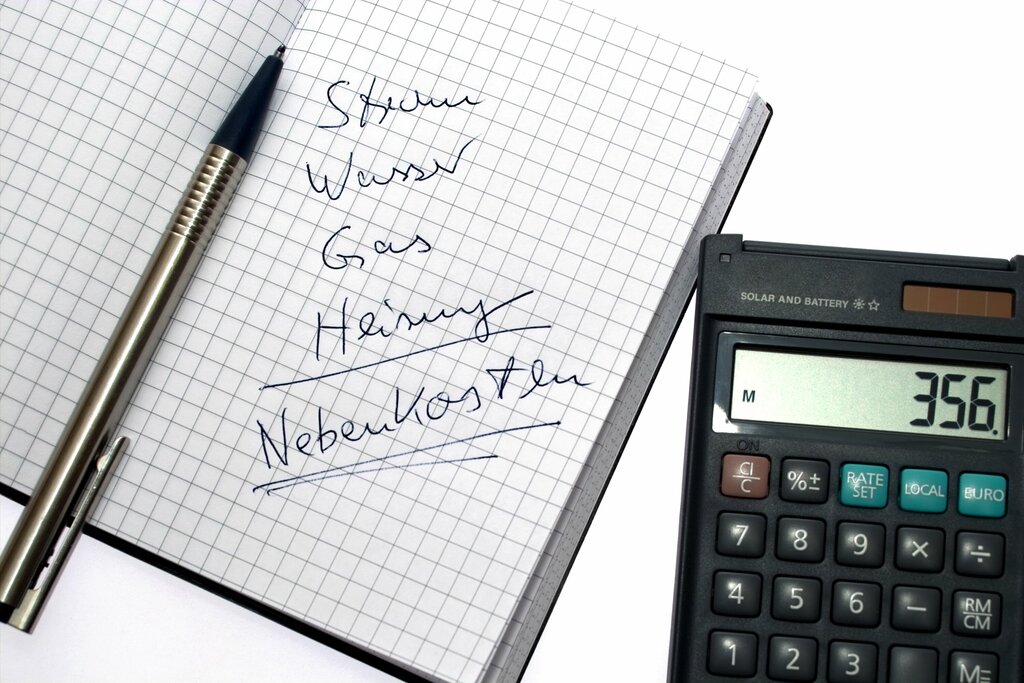 Strom
Wasser
Gas
Heizung
Nebenkosten
SOLAR AND BATTERY
M 356.
ON
CI/C %± RATE SET LOCAL EURO
7 8 9 × ÷
4 5 6 − RM/CM
1 2 3 M=